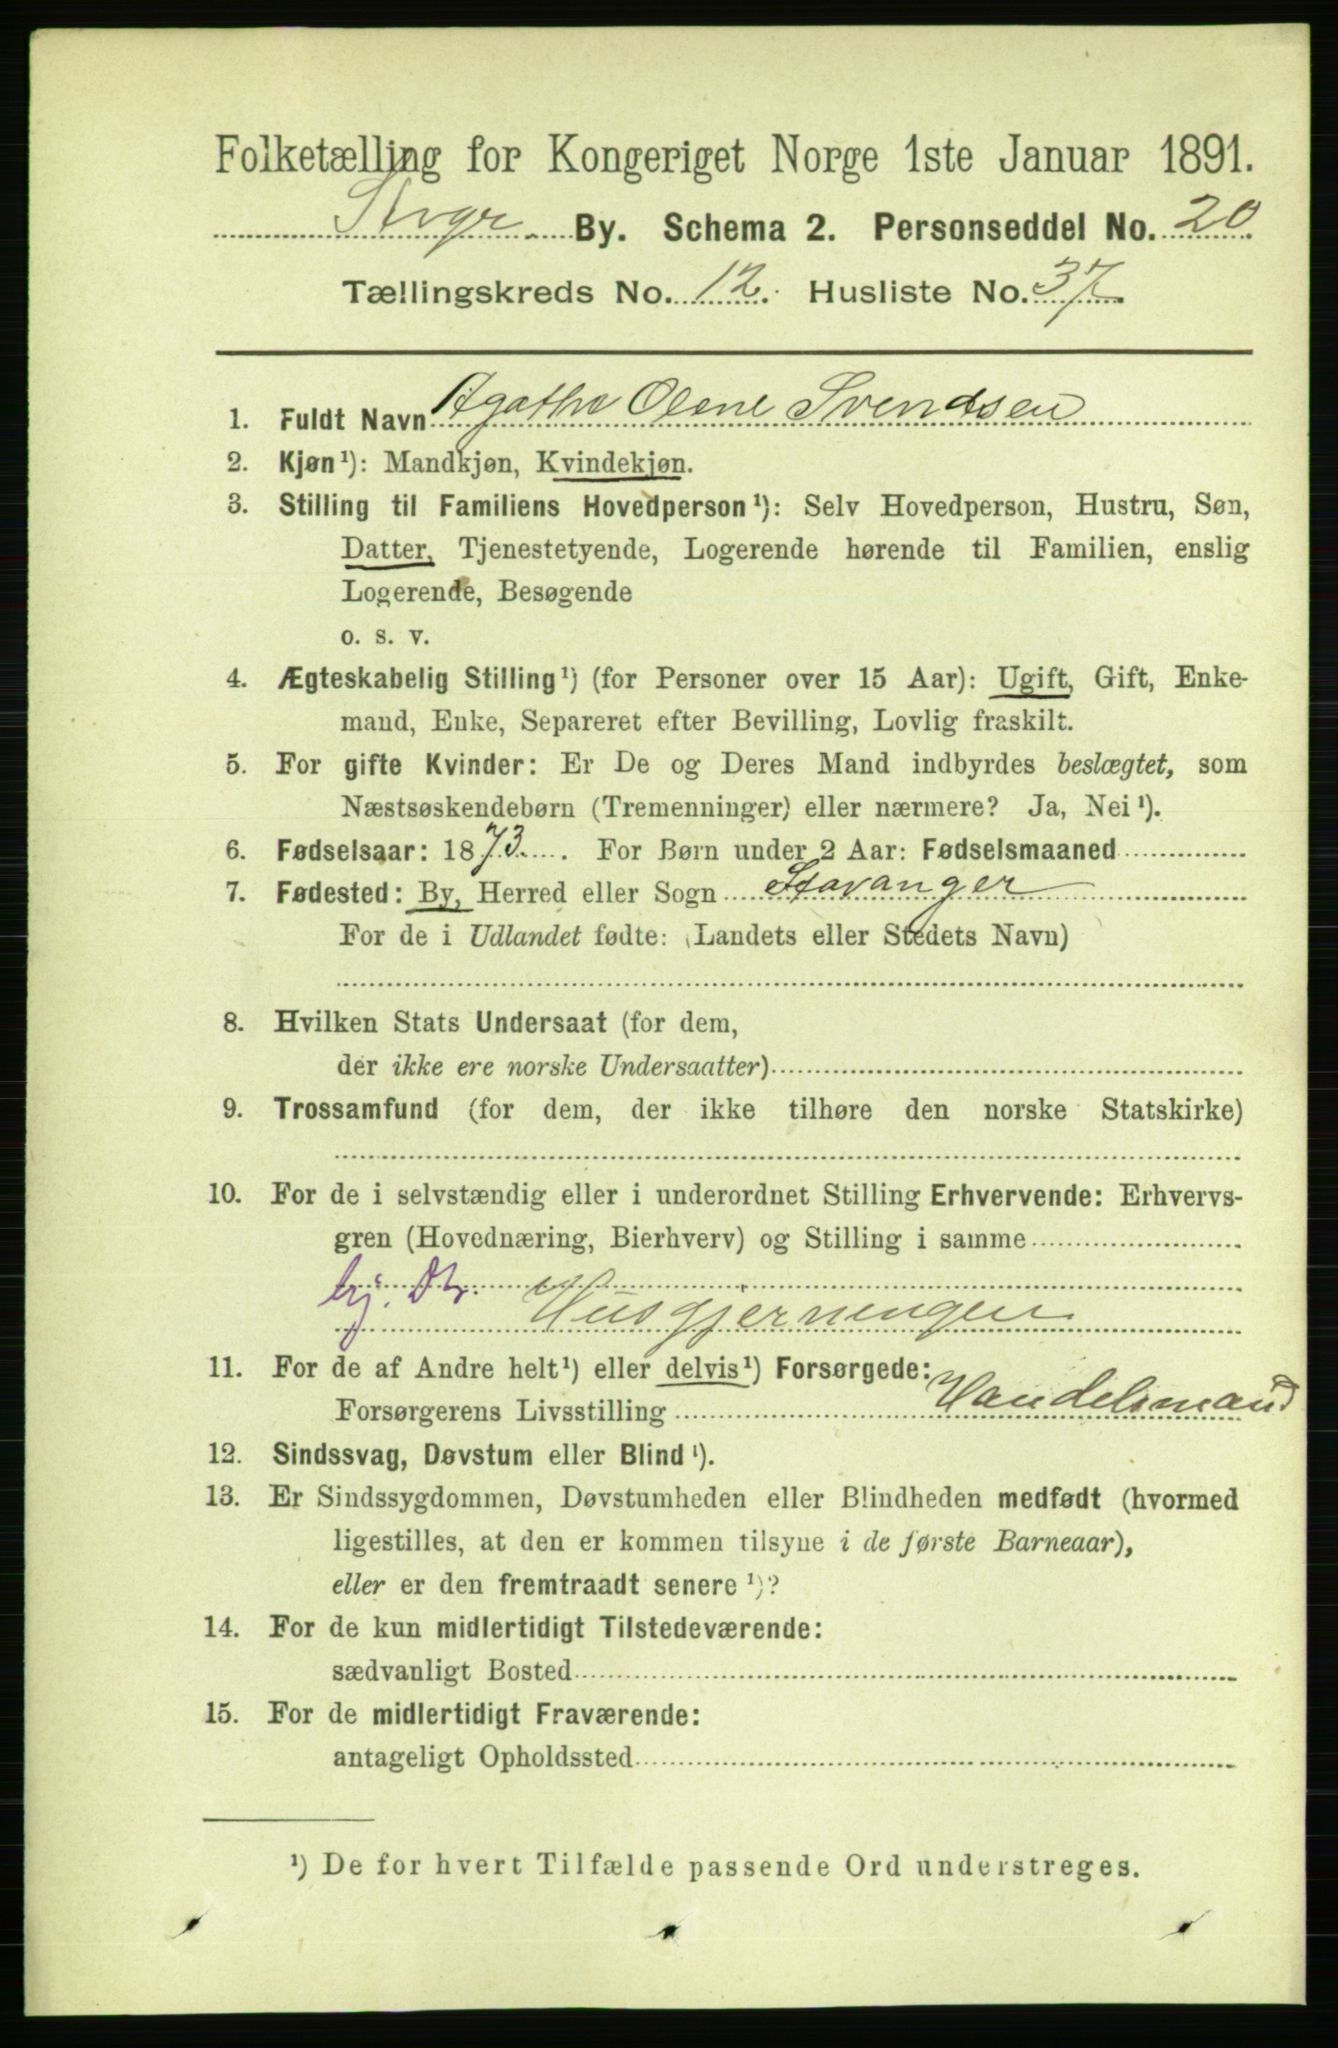 Folketælling for Kongeriget Norge 1ste Januar 1891.
Svgr. By. Schema 2. Personseddel No. 20
Tællingskreds No. 12. Husliste No. 37
1. Fuldt Navn Agathe Olene Svendsen
2. Kjøn¹): Mandkjøn, Kvindekjøn.
3. Stilling til Familiens Hovedperson¹): Selv Hovedperson, Hustru, Søn,
Datter, Tjenestetyende, Logerende hørende til Familien, enslig
Logerende, Besøgende
o. s. v.
4. Ægteskabelig Stilling¹) (for Personer over 15 Aar): Ugift, Gift, Enke-
mand, Enke, Separeret efter Bevilling, Lovlig fraskilt.
5. For gifte Kvinder: Er De og Deres Mand indbyrdes beslægtet, som
Næstsøskendebørn (Tremenninger) eller nærmere? Ja, Nei¹).
6. Fødselsaar: 1873. For Børn under 2 Aar: Fødselsmaaned
7. Fødested: By, Herred eller Sogn Stavanger
For de i Udlandet fødte: (Landets eller Stedets Navn)
8. Hvilken Stats Undersaat (for dem,
der ikke ere norske Undersaatter)
9. Trossamfund (for dem, der ikke tilhøre den norske Statskirke)
10. For de i selvstændig eller i underordnet Stilling Erhvervende: Erhvervs-
gren (Hovednæring, Bierhverv) og Stilling i samme
hj. Dt.
Husgjerningen
11. For de af Andre helt¹) eller delvis¹) Forsørgede:
Forsørgerens Livsstilling Handelsmand
12. Sindssvag, Døvstum eller Blind¹).
13. Er Sindssygdommen, Døvstumheden eller Blindheden medfødt (hvormed
ligestilles, at den er kommen tilsyne i de første Barneaar),
eller er den fremtraadt senere¹)?
14. For de kun midlertidigt Tilstedeværende:
sædvanligt Bosted
15. For de midlertidigt Fraværende:
antageligt Opholdssted
¹) De for hvert Tilfælde passende Ord understreges.